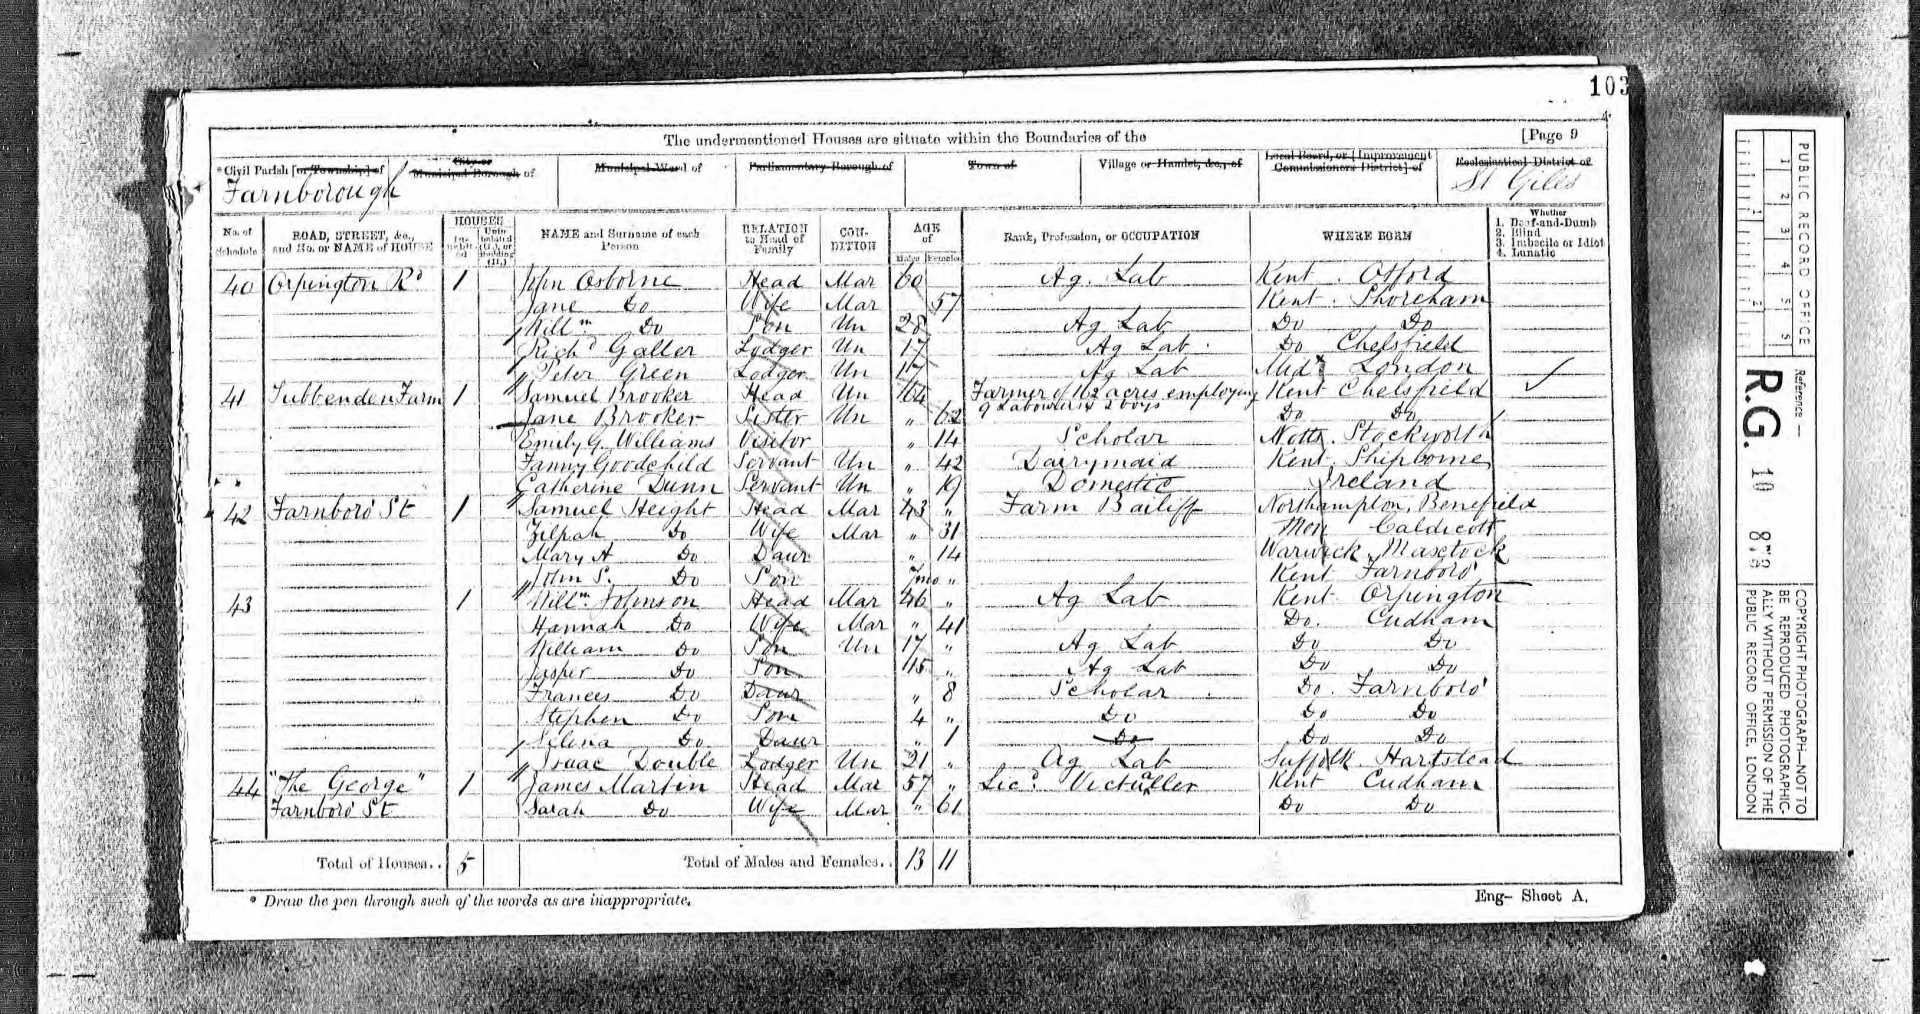 103
The undermentioned Houses are situate within the Boundaries of the
[Page 9
Civil Parish [or Township] of
City or Municipal Borough of
Municipal Ward of
Parliamentary Borough of
Town of
Village or Hamlet, &c., of
Local Board, or [Improvement Commissioners District] of
Ecclesiastical District of
Farnborough
St Giles
No. of Schedule
ROAD, STREET, &c., and No. or NAME of HOUSE
HOUSES
Inhabited
Uninhabited (U.), or Building (B.)
NAME and Surname of each Person
RELATION to Head of Family
CONDITION
AGE of
Males
Females
Rank, Profession, or OCCUPATION
WHERE BORN
Whether
1. Deaf-and-Dumb
2. Blind
3. Imbecile or Idiot
4. Lunatic
40 Orpington Rd 1 John Osborne Head Mar 60 Ag. Lab Kent. Otford
Jane Do Wife Mar 57 Kent. Shoreham
Willm Do Son Un 28 Ag Lab Do Do
Richd Galler Lodger Un 17 Ag Lab. Do Chelsfield
Peter Green Lodger Un 17 Ag Lab Midx London
41 Tubbenden Farm 1 Samuel Brooker Head Un 64 Farmer of 162 acres employing Kent Chelsfield
Jane Brooker Sister Un " 62 9 Labourers & 2 boys Do Do
Emily G. Williams Visitor " 14 Scholar Notts.
Fanny Goodchild Servant Un " 42 Dairymaid Kent. Shipborne
Catherine Dunn Servant Un " 19 Domestic Ireland
42 Farnboro' St 1 Samuel Height Head Mar 43 " Farm Bailiff Northampton. Benefield
Zilpah Do Wife Mar " 31 Mon Caldicott
Mary A Do Daur " 14 Warwick Maxstock
John S. Do Son 7mo " Kent Farnboro'
43 1 Willm. Johnson Head Mar 46 " Ag Lab Kent Orpington
Hannah Do Wife Mar " 41 Do. Cudham
William Do Son Un 17 " Ag Lab Do Do
Jasper Do Son 15 " Ag Lab Do Do
Frances Do Daur " 8 Scholar Do. Farnboro'
Stephen Do Son 4 " Do Do Do
Selina Do Daur " 1 Do Do Do
Isaac Double Lodger Un 21 " Ag Lab Suffolk. Hartstead
44 "The George" 1 James Martin Head Mar 57 " Licd. Victualler Kent Cudham
Farnboro' St Sarah Do Wife Mar " 61 Do Do
Total of Houses.. 5
Total of Males and Females.. 13 11
* Draw the pen through such of the words as are inappropriate.
Eng- Sheet A.
PUBLIC RECORD OFFICE
1 2 3 4 5
1 2
Reference :-
R.G. 10 873
COPYRIGHT PHOTOGRAPH-NOT TO
BE REPRODUCED PHOTOGRAPHIC-
ALLY WITHOUT PERMISSION OF THE
PUBLIC RECORD OFFICE, LONDON